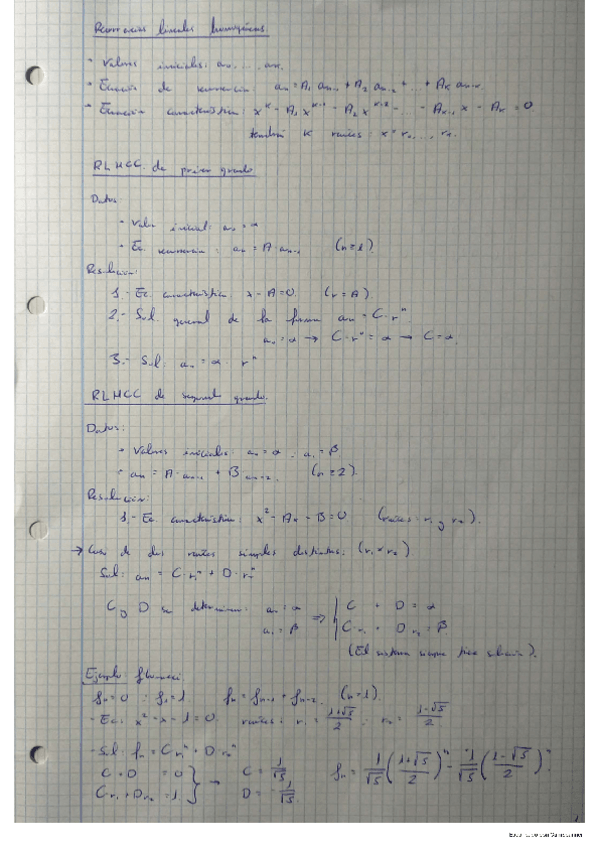 Recurrencias lineales homogéneas.
· Valores iniciales: a₀, ..., aₖ.
· Ecuación de recurrencia: aₙ = A₁ aₙ₋₁ + A₂ aₙ₋₂ + ... + Aₖ aₙ₋ₖ
· Ecuación característica: xᴷ - A₁ xᴷ⁻¹ - A₂ xᴷ⁻² - ... - Aₖ₋₁ x - Aₖ = 0.
tendrá K raíces: x = r₁, ..., rₖ.
RLHCC de primer grado.
Datos:
· Valor inicial: a₀ = α
· Ec. recurrencia: aₙ = A·aₙ₋₁ (n≥1).
Resolución:
1.- Ec. característica: x - A = 0. (r = A).
2.- Sol. general de la forma aₙ = C·rⁿ
a₀ = α → C·r⁰ = α → C = α.
3.- Sol: aₙ = α · rⁿ
RLHCC de segundo grado.
Datos:
· Valores iniciales: a₀ = α ; a₁ = β
· aₙ = A·aₙ₋₁ + B aₙ₋₂. (n≥2).
Resolución:
1.- Ec. característica: x² - Ax - B = 0 (raíces: r₁ y r₂).
→ Caso de dos raíces simples distintas: (r₁ ≠ r₂)
Sol: aₙ = C·r₁ⁿ + D·r₂ⁿ
C y D se determinan: a₀ = α ⇒ C + D = α
a₁ = β C·r₁ + D r₂ = β
(El sistema siempre tiene solución).
Ejemplo: fibonacci.
f₀ = 0 ; f₁ = 1. fₙ = fₙ₋₁ + fₙ₋₂. (n≥1).
- Ec: x² - x - 1 = 0. raíces: r₁ = (1+√5)/2 ; r₂ = (1-√5)/2.
- Sol: fₙ = C r₁ⁿ + D·r₂ⁿ
C + D = 0 } → C = 1/√5 fₙ = 1/√5 ((1+√5)/2)ⁿ - 1/√5 ((1-√5)/2)ⁿ.
C·r₁ + D r₂ = 1 D = -1/√5.